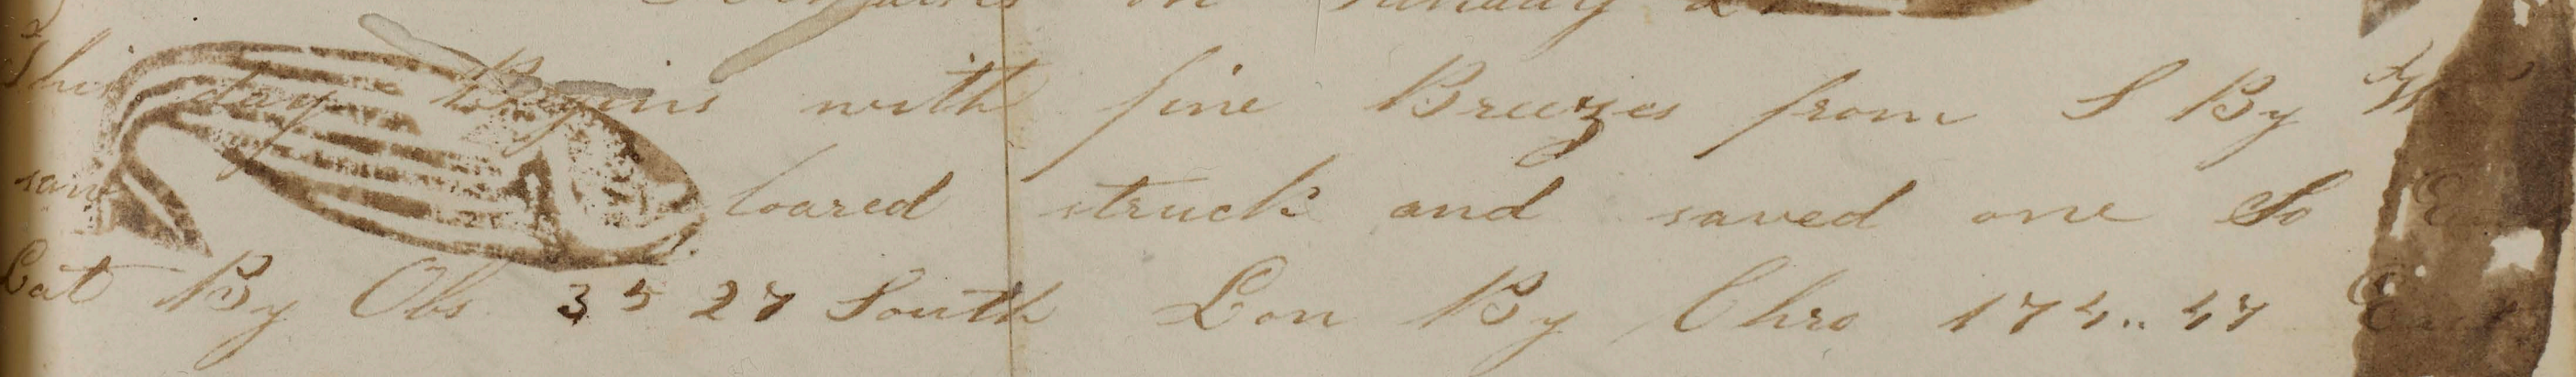 on Sunday
This day Begins with fine Breezes from S By W
saw loared struck and saved one So
Lat By Obs 35 27 South Lon By Chro 174.. 47 East